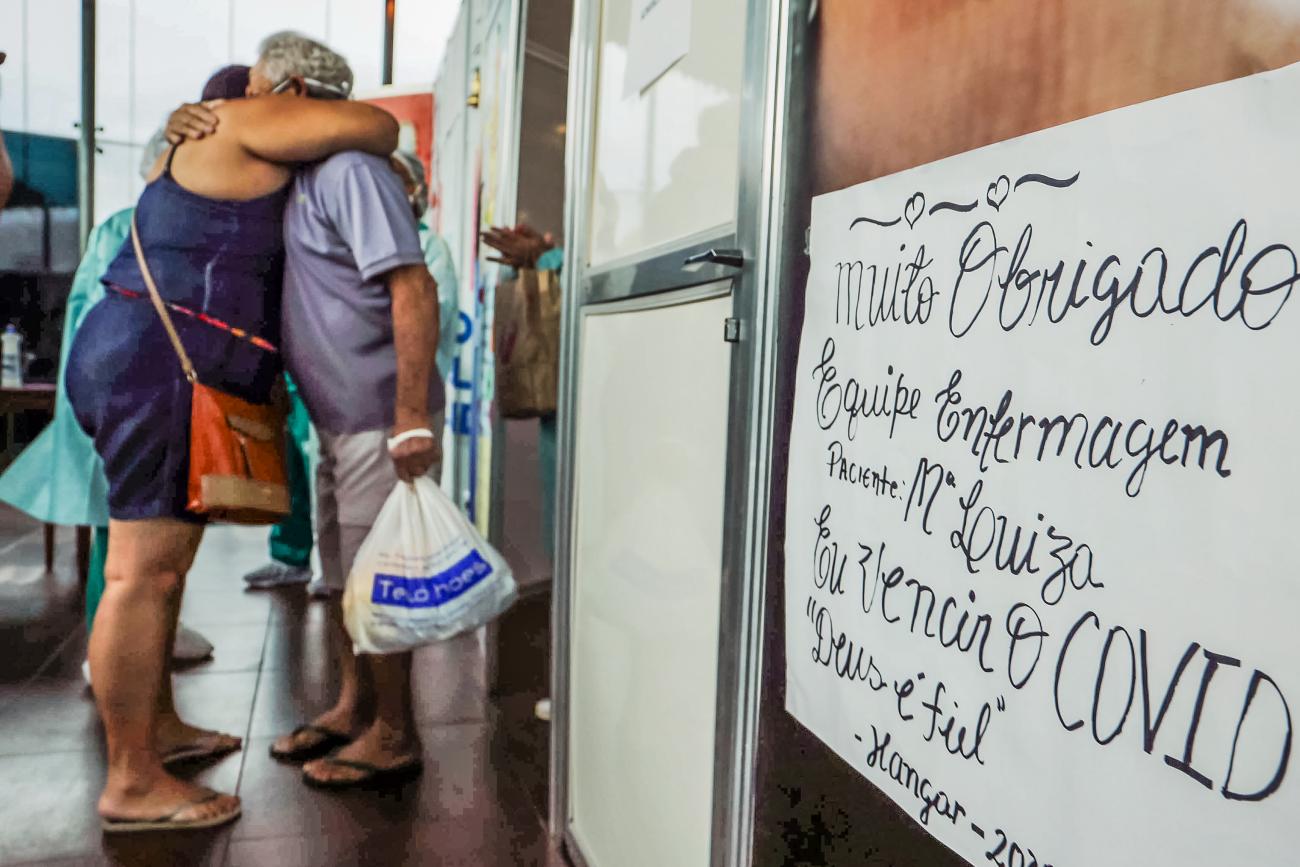 muito Obrigado
Equipe Enfermagem
Paciente: Mª Louiza
Eu Vencir O COVID
"Deus é fiel"
- Hangar - 202